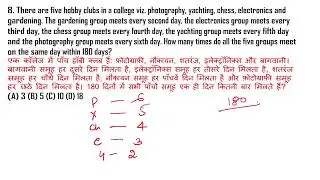 8. There are five hobby clubs in a college viz. photography, yachting, chess, electronics and
gardening. The gardening group meets every second day, the electronics group meets every
third day, the chess group meets every fourth day, the yachting group meets every fifth day
and the photography group meets every sixth day. How many times do all the five groups meet
on the same day within 180 days?
एक कॉलेज में पाँच हॉबी क्लब हैं: फ़ोटोग्राफी, नौकायन, शतरंज, इलेक्ट्रॉनिक्स और बागवानी।
बागवानी समूह हर दूसरे दिन मिलता है, इलेक्ट्रॉनिक्स समूह हर तीसरे दिन मिलता है, शतरंज
समूह हर चौथे दिन मिलता है, नौकायन समूह हर पाँचवें दिन मिलता है और फोटोग्राफी समूह
हर छठे दिन मिलता है। 180 दिनों में सभी पाँचों समूह एक ही दिन कितनी बार मिलते हैं?
(A) 3 (B) 5 (C) 10 (D) 18
P - 6
Y - 5
ch - 4
e - 3
4 - 2
180